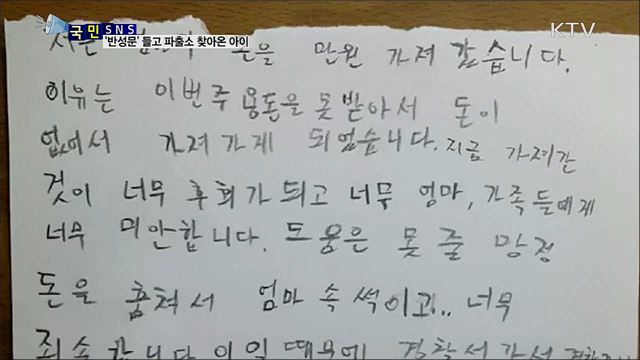 국민 SNS
'반성문' 들고 파출소 찾아온 아이
KTV
돈을 만원 가져 갔습니다.
이유는 이번주 용돈을 못받아서 돈이
없어서 가져가게 되었습니다. 지금 가져간
것이 너무 후회가 되고 너무 엄마, 가족들에게
너무 미안합니다. 도움은 못 줄 망정
돈을 훔쳐서 엄마 속 썩이고.. 너무
죄송합니다 이일 때문에 경찰서가서